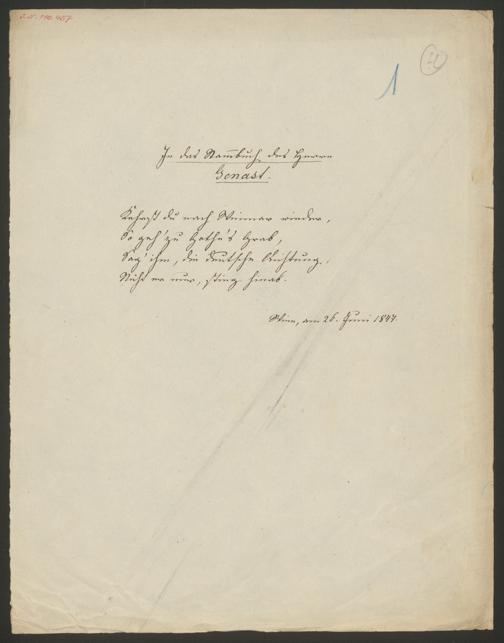 1
In das Stammbuch des Herrn
Genast.
Kehrst du nach Weimar wieder,
So geh' zu Göthe's Grab,
Sag' ihm, die deutsche Dichtung,
Nicht er nur, stieg hinab.
Wien, am 26. Juni 1847.